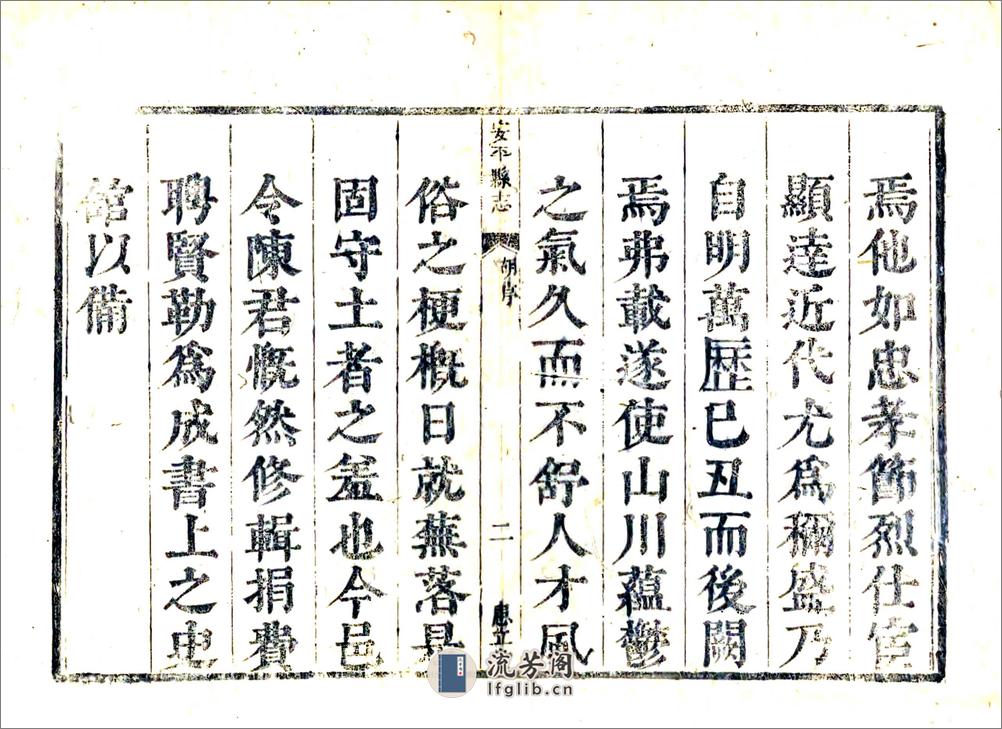 焉他如忠孝節烈仕宦
顯達近代尤爲穪盛乃
自明萬歷已丑而後闕
焉弗載遂使山川蘊鬱
之氣久而不舒人才風
安平縣志
胡序
二
俗之梗概日就蕪落是
固守土者之羞也今邑
令陳君慨然修輯捐費
聘賢勒爲成書上之史
舘以備
流芳阁
lfglib.cn